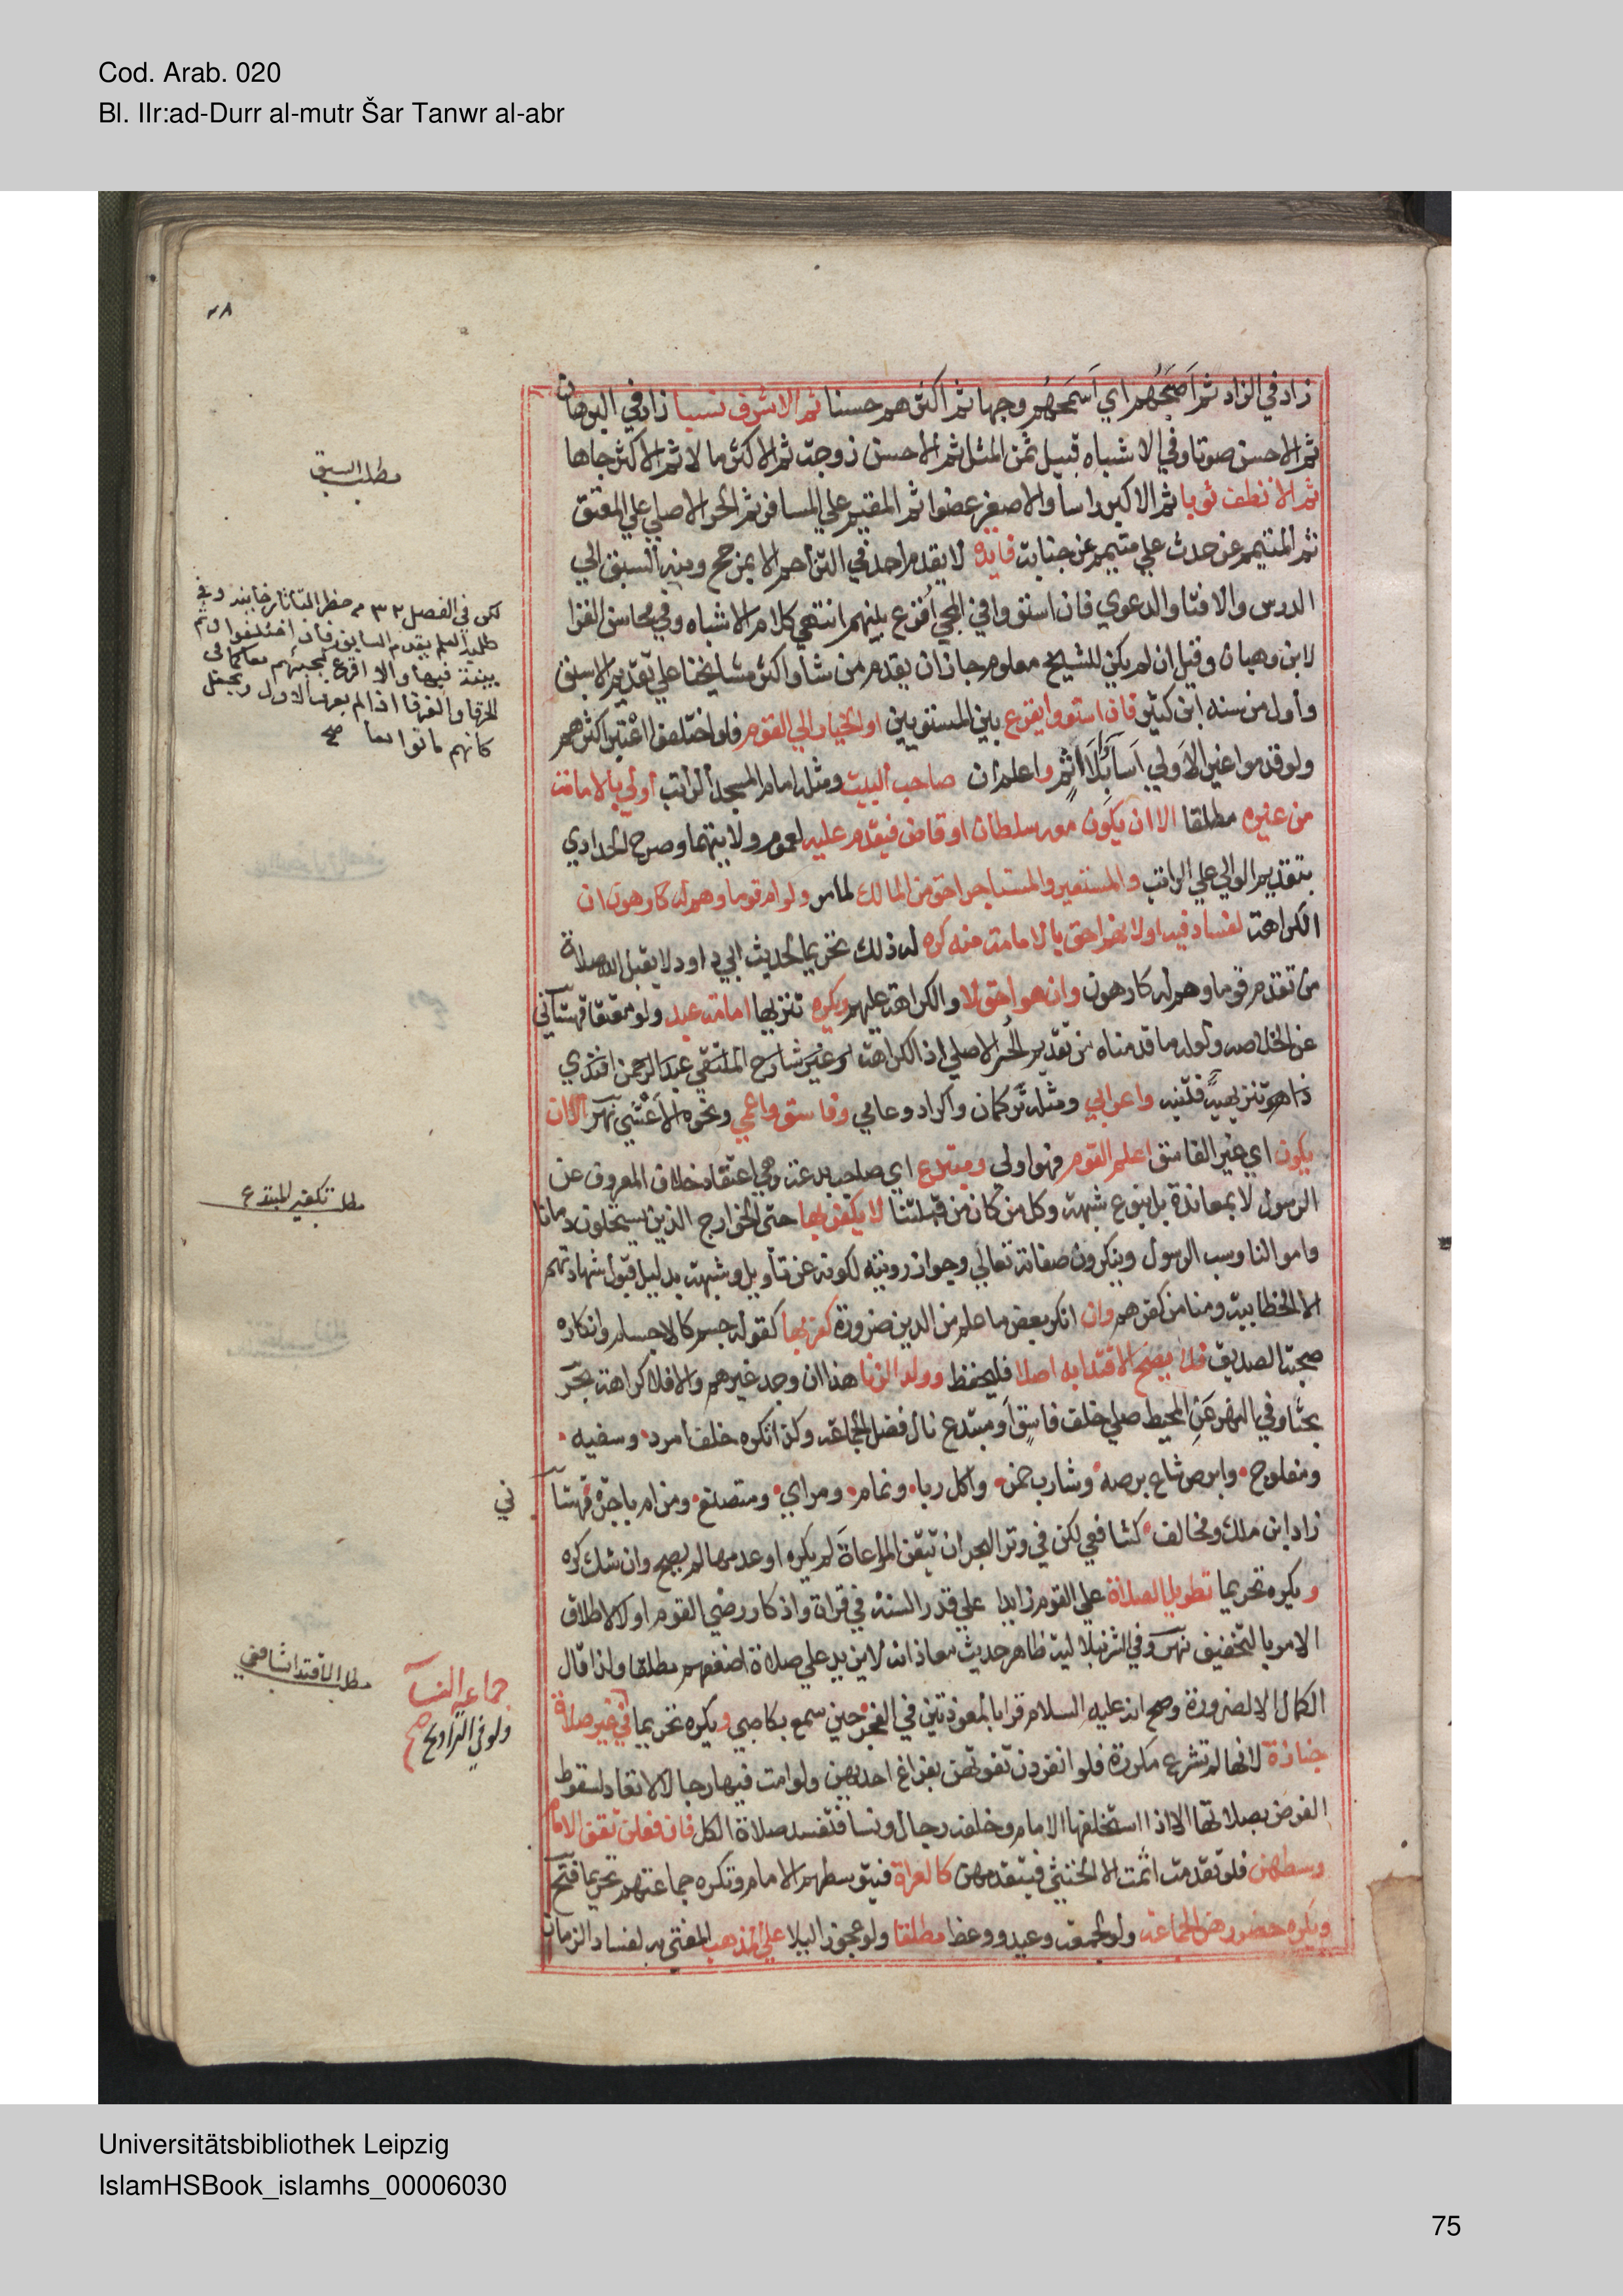 Cod. Arab. 020
Bl. IIr:ad-Durr al-mutr Šar Tanwr al-abr
٣٨
زاد في الزاد ثم أصبحهم اي أسمحهم وجها ثم اكثرهم حسنا ثم الاشرف نسبا زاد في البرهان
ثم الاحسن صوتا وفي الاشباه قبيل ثمن المثل ثم الاحسن زوجة ثم الاكثر مالا ثم الاكثر جاها
ثم الانظف ثوبا ثم الاكبر راسا والاصغر عضوا ثم المقيم علي المسافر ثم الحر الاصلي علي المعتق
ثم المتيمم عن حدث علي متيمم عن جنابة فايده لا يقدم احد في التزاحم الا بمرجح ومنه السبق الي
الدرس والافتا والدعوي فان استووا في المجي أقرع بينهم انتهي كلام الاشباه وفي محاسن القرا
لابن وهبان وقيل ان لم يكن للشيخ معلوم جاز ان يقدم من شا واكثر مشايخنا علي تقديم الاسبق
وأول من سنه ابن كثير فان استووا يقرع بين المستويين او الخيار الي القوم فلو اختلفوا اعتبر اكثرهم
ولو قدموا غير الاولي أساؤا بلا اثم واعلم ان صاحب البيت ومثله امام المسجد الراتب أولي بالامامة
من غيره مطلقا الا ان يكون معه سلطان او قاض فيقدم عليه لعموم ولايتهما وصرح الحدادي
بتقديم الوالي علي الراتب والمستعير والمستاجر احق من المالك لما مر ولو ام قوما وهم له كارهون ان
الكراهة لفساد فيه او لانهم احق بالامامة منه كره له ذلك تحريما لحديث ابي داود لا يقبل الله صلاة
من تقدم قوما وهم له كارهون وان هو احق لا والكراهة عليهم ويكره تنزيها امامة عبد ولو معتقا قهستاني
عن الخلاصه ولعله ما قدمناه من تقديم الحر الاصلي اذ الكراهة وغير شارح الملتقي عبد الرحمن افندي
ذا هو تنزيهية فتنبه واعرابي ومثله تركمان واكراد وعامي وفاسق واعمي ونحوه الاعشي نهر الا ان
يكون اي غير الفاسق اعلم القوم فهو اولي ومبتدع اي صاحب بدعة وهي اعتقاد خلاف المعروف عن
الرسول لا بمعاندة بل بنوع شبهة وكل من كان من قبلتنا لا يكفر بها حتي الخوارج الذين يستحلون دمانا
واموالنا وسب الرسول وينكرون صفاته تعالي وجواز رويته لكونه عن تأويل وشبهة بدليل قبول شهادتهم
الا الخطابية ومنا من كفرهم وان انكر بعض ما علم من الدين ضرورة كفر بها كقوله جسم كالاجسام وانكاره
صحبة الصديق فلا يصح الاقتدا به اصلا فليحفظ وولد الزنا هذا ان وجد غيرهم والا فلا كراهة بحر
بحثا وفي النهر عن المحيط صلي خلف فاسق او مبتدع نال فضل الجماعة وكذا تكره خلف أمرد وسفيه
ومفلوج وابرص شاع برصه وشارب خمر واكل ربا ونمام ومراي ومتصنع ومن ام باجرة قهستا
ني
زاد ابن ملك ومخالف كشافعي لكن في وتر البحر ان تيقن المراعاة لم يكره او عدمها لم يصح وان شك كره
ويكره تحريما تطويل الصلاة علي القوم زايدا علي قدر السنة في قراة واذكار رضي القوم او لا لاطلاق
الامر بالتخفيف نهر وفي الشرنبلالية ظاهر حديث معاذ انه لا يزيد علي صلاة اضعفهم مطلقا ولذا قال
الكمال الا لضرورة وصح انه عليه السلام قرا بالمعوذتين في الفجر حين سمع بكا صبي ويكره تحريما في غير صلاة
جنازة لانها لم تشرع مكررة فلو انفردن تفوتهن بفراغ احديهن ولو امت فيها رجالا لا تعاد لسقوط
الفرض بصلاتها الا اذا استخلفها الامام وخلفه رجال ونسا فتفسد صلاة الكل فان فعلن تقف الامام
وسطهن فلو تقدمت اثمت الا الخنثي فيتقدمهن كالعراة فيتوسطهم الامام وتكره جماعتهم تحريما فتح
ويكره حضورهن الجماعة ولو لجمعة وعيد ووعظ مطلقا ولو عجوز اليلا علي المذهب المفتي به لفساد الزمان
مطلب السبق
لكن في الفصل ٣٢ من حظر التاتارخانيه وفي
طلبة العلم يقدم السابق فان اختلفوا وثم
ببينة فيها والا اقرع لمجيئهم معا كما في
الحرقا والغرقا اذا لم يعرف الاول ويجعل
كانهم ماتوا معا صح
مطلب تكفير المبتدع
مطلب الاقتدا بشافعي
جماعة النسآ
ولو في التراويح صح
Universitätsbibliothek Leipzig
IslamHSBook_islamhs_00006030
75